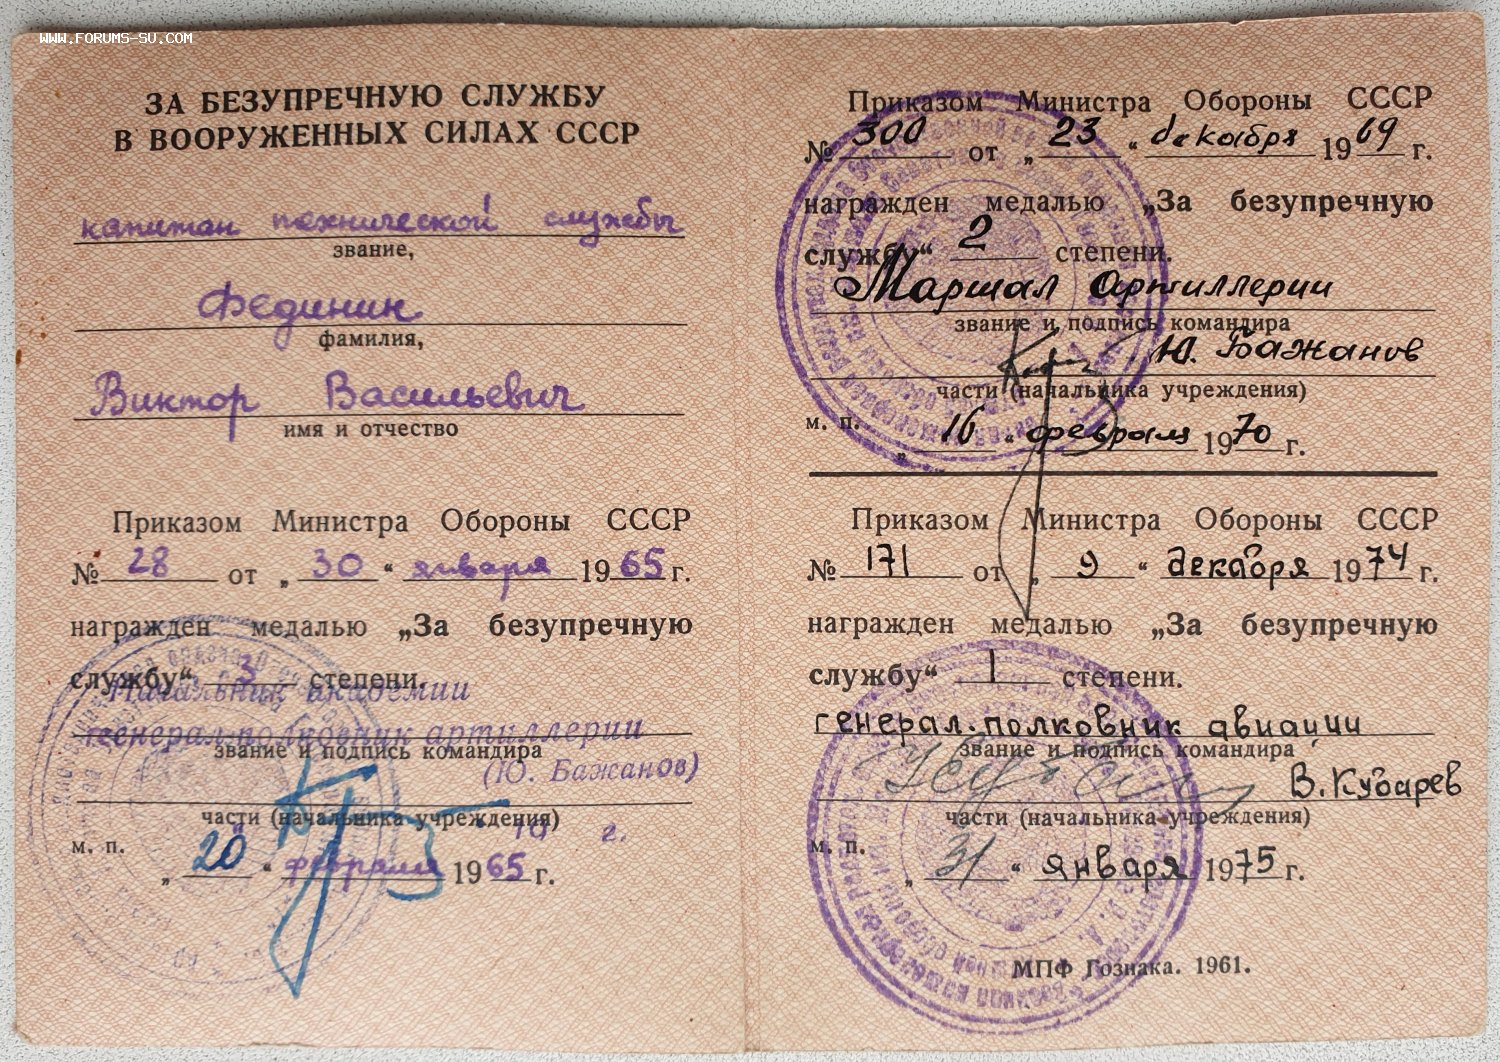 WWW.FORUMS-SU.COM
ЗА БЕЗУПРЕЧНУЮ СЛУЖБУ
В ВООРУЖЕННЫХ СИЛАХ СССР
капитан технической службы
звание,
Фединин
фамилия,
Виктор Васильевич
имя и отчество
Приказом Министра Обороны СССР
№ 28 от „ 30 “ января 1965 г.
награжден медалью „За безупречную
службу“ 3 степени.
Начальник академии
генерал-полковник артиллерии
звание и подпись командира
(Ю. Бажанов)
части (начальника учреждения)
г.
м. п.
„ 20 “ февраля 1965 г.
Приказом Министра Обороны СССР
№ 300 от „ 23 “ декабря 1969 г.
награжден медалью „За безупречную
службу“ 2 степени.
Маршал Артиллерии
звание и подпись командира
Ю. Бажанов
части (начальника учреждения)
м. п.
„ 16 “ февраля 1970 г.
Приказом Министра Обороны СССР
№ 171 от „ 9 “ декабря 1974 г.
награжден медалью „За безупречную
службу“ 1 степени.
генерал-полковник авиации
звание и подпись командира
В. Кубарев
части (начальника учреждения)
м. п.
„ 31 “ января 1975 г.
МПФ Гознака. 1961.